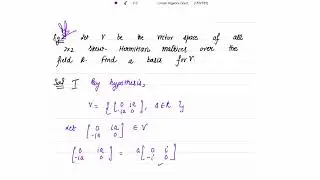 Let V be the vector space of all
2x2 Skew-Hermitian matrices over the
field R. Find a basis for V.
Solⁿ I By hypothesis,
V = { [0 ia; -ia 0], a∈R }
Let [0 ia; -ia 0] ∈ V
[0 ia; -ia 0] = a [0 i; -i 0]